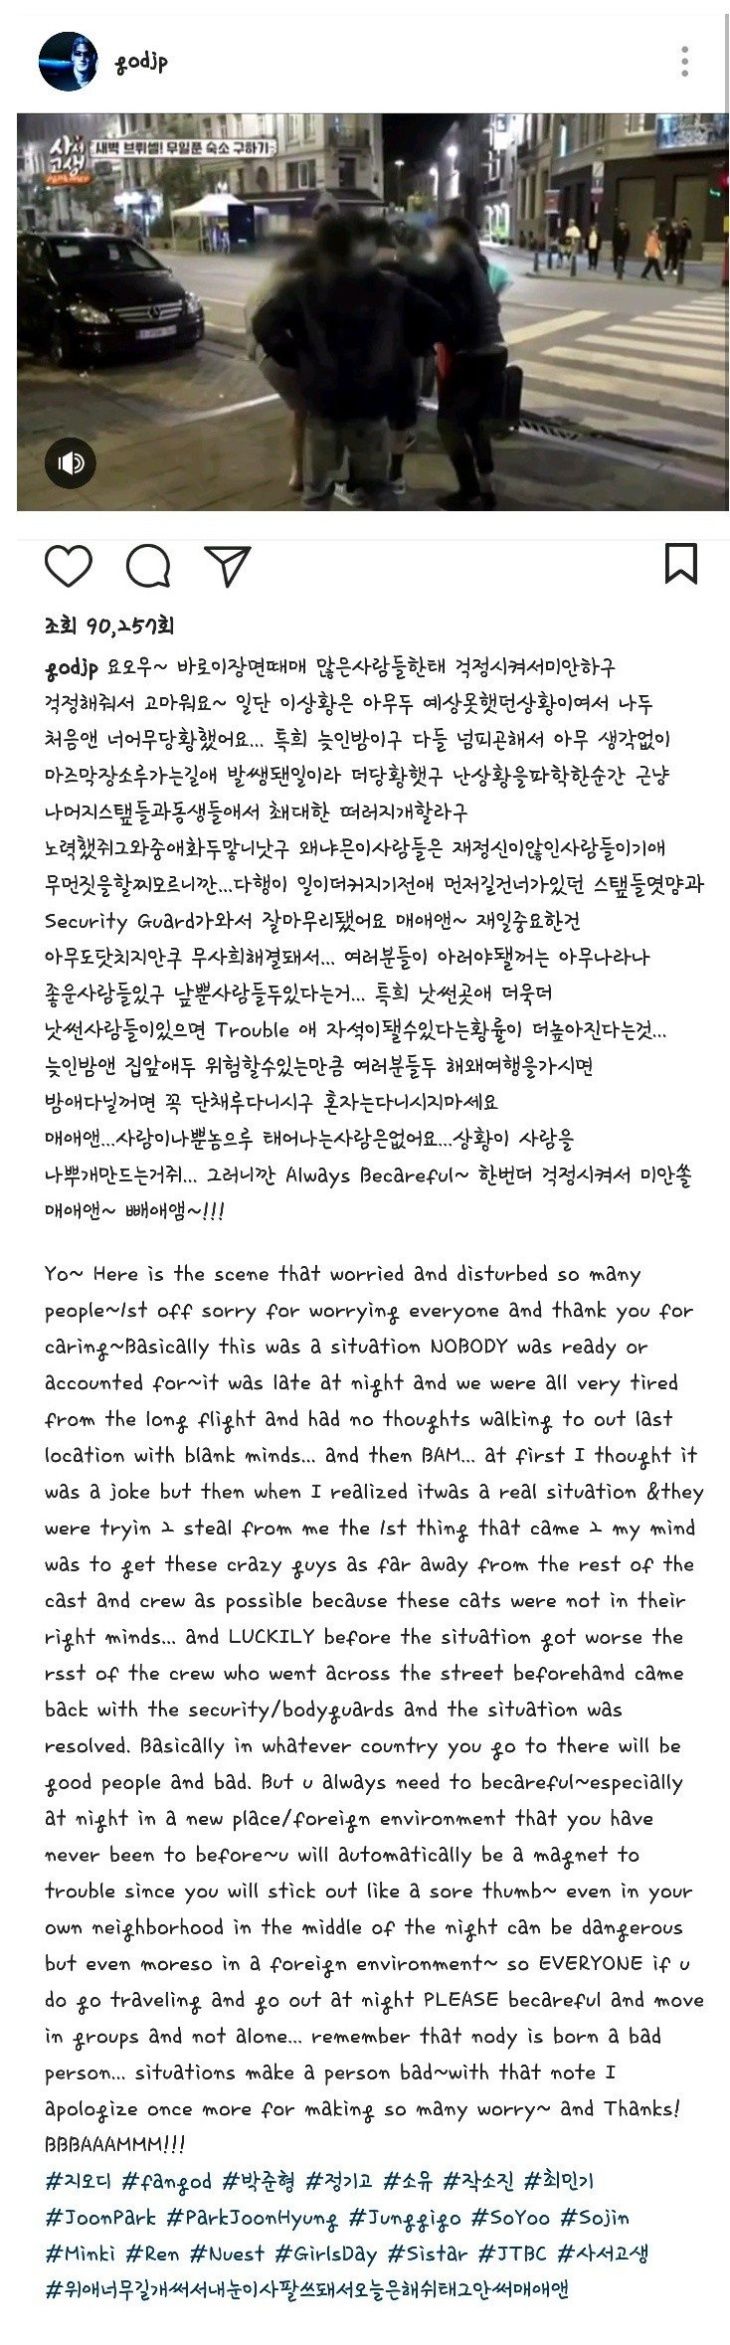 godjp
사서고생
새벽 브뤼셀! 무일푼 숙소 구하기
조회 90,257회
godjp 요오우~ 바로이장면때매 많은사람들한태 걱정시켜서미안하구
걱정해줘서 고마워요~ 일단 이상황은 아무두 예상못했던상황이여서 나두
처음앤 너어무당황했어요... 특희 늦인밤이구 다들 넘피곤해서 아무 생각없이
마즈막장소루가는길애 발쌩됀일이라 더당황했구 난상황을파학한순간 근냥
나머지스탶들과동생들애서 쵀대한 떠러지개할라구
노력했쥐그와중애화두많니낫구 왜냐믄이사람들은 재정신이않인사람들이기애
무먼짓을할찌모르니깐...다행이 일이더커지기전애 먼저길건너가있던 스탶들몃먕과
Security Guard가와서 잘마무리됐어요 매애앤~ 재일중요한건
아무도닷치지만쿠 무사희해결돼서... 여러분들이 아러야됄꺼는 아무나라나
좋운사람들있구 낲뿐사람들두있다는거... 특희 낫썬곳애 더욱더
낫썬사람들이있으면 Trouble 애 자석이됄수있다는황률이 더높아진다는것...
늦인밤앤 집앞애두 위험할수있는만큼 여러분들두 해왜여행을가시면
밤애다닐꺼면 꼭 단채루다니시구 혼자는다니시지마세요
매애앤...사람이나뿐놈으루 태어나는사람은없어요...상황이 사람을
나뿌개만드는거쥐... 그러니깐 Always Becareful~ 한번더 걱정시켜서 미안쏠
매애앤~ 빼애앰~!!!
Yo~ Here is the scene that worried and disturbed so many
people~1st off sorry for worrying everyone and thank you for
caring~Basically this was a situation NOBODY was ready or
accounted for~it was late at night and we were all very tired
from the long flight and had no thoughts walking to out last
location with blank minds... and then BAM... at first I thought it
was a joke but then when I realized itwas a real situation &they
were tryin 2 steal from me the 1st thing that came 2 my mind
was to get these crazy guys as far away from the rest of the
cast and crew as possible because these cats were not in their
right minds... and LUCKILY before the situation got worse the
rsst of the crew who went across the street beforehand came
back with the security/bodyguards and the situation was
resolved. Basically in whatever country you go to there will be
good people and bad. But u always need to becareful~especially
at night in a new place/foreign environment that you have
never been to before~u will automatically be a magnet to
trouble since you will stick out like a sore thumb~ even in your
own neighborhood in the middle of the night can be dangerous
but even moreso in a foreign environment~ so EVERYONE if u
do go traveling and go out at night PLEASE becareful and move
in groups and not alone... remember that nody is born a bad
person... situations make a person bad~with that note I
apologize once more for making so many worry~ and Thanks!
BBBAAAMMM!!!
#지오디 #fangod #박준형 #정기고 #소유 #작소진 #최민기
#JoonPark #ParkJoonHyung #Junggigo #SoYoo #Sojin
#Minki #Ren #Nuest #GirlsDay #Sistar #JTBC #사서고생
#위애너무길개써서내눈이사팔쓰돼서오늘은해쉬태그안써매애앤